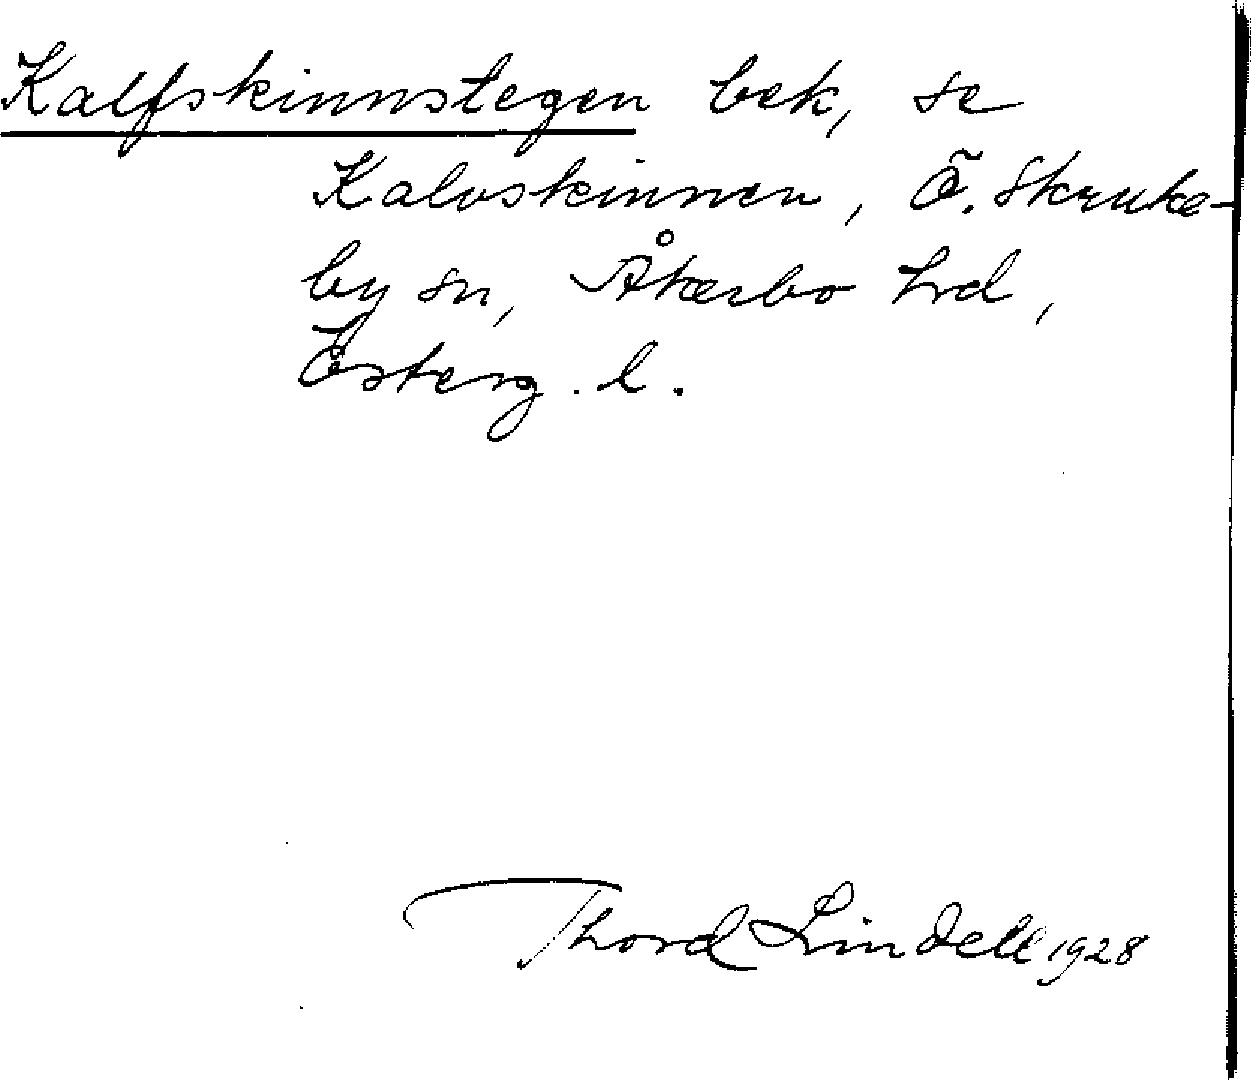 Kalfskinnstegen bek, se
Kalvskinnen, Ö. Skruke-
by sn, Åkerbo hd,
Österg. l.
Thord Lindell 1928